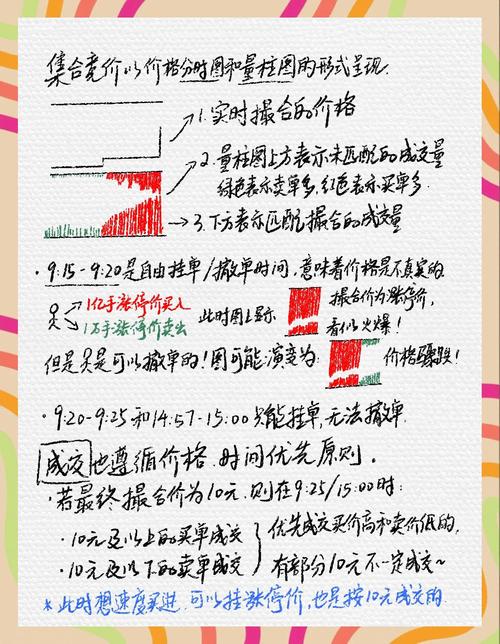 集合竞价以价格分时图和量柱图的形式呈现.
1.实时撮合的价格
2.量柱图上方表示未匹配的成交量
绿色表示卖单多,红色表示买单多.
3.下方表示匹配撮合的成交量
·9:15-9:20是自由挂单/撤单时间,意味着价格是不真实的
1亿手涨停价买入
1万手涨停价卖出
此时图上显示
撮合价为涨停价,
看似火爆!
但是是可以撤单的!图可能演变为:
价格骤跌!
·9:20-9:25和14:57-15:00只能挂单,无法撤单.
成交也遵循价格.时间优先原则.
·若最终撮合价为10元.则在9:25/15:00时:
·10元及以上的买单成交
·10元及以下的卖单成交
优先成交买价高和卖价低的,
有部分10元不一定成交~
*此时想速度买进,可以挂涨停价,也是按10元成交的.